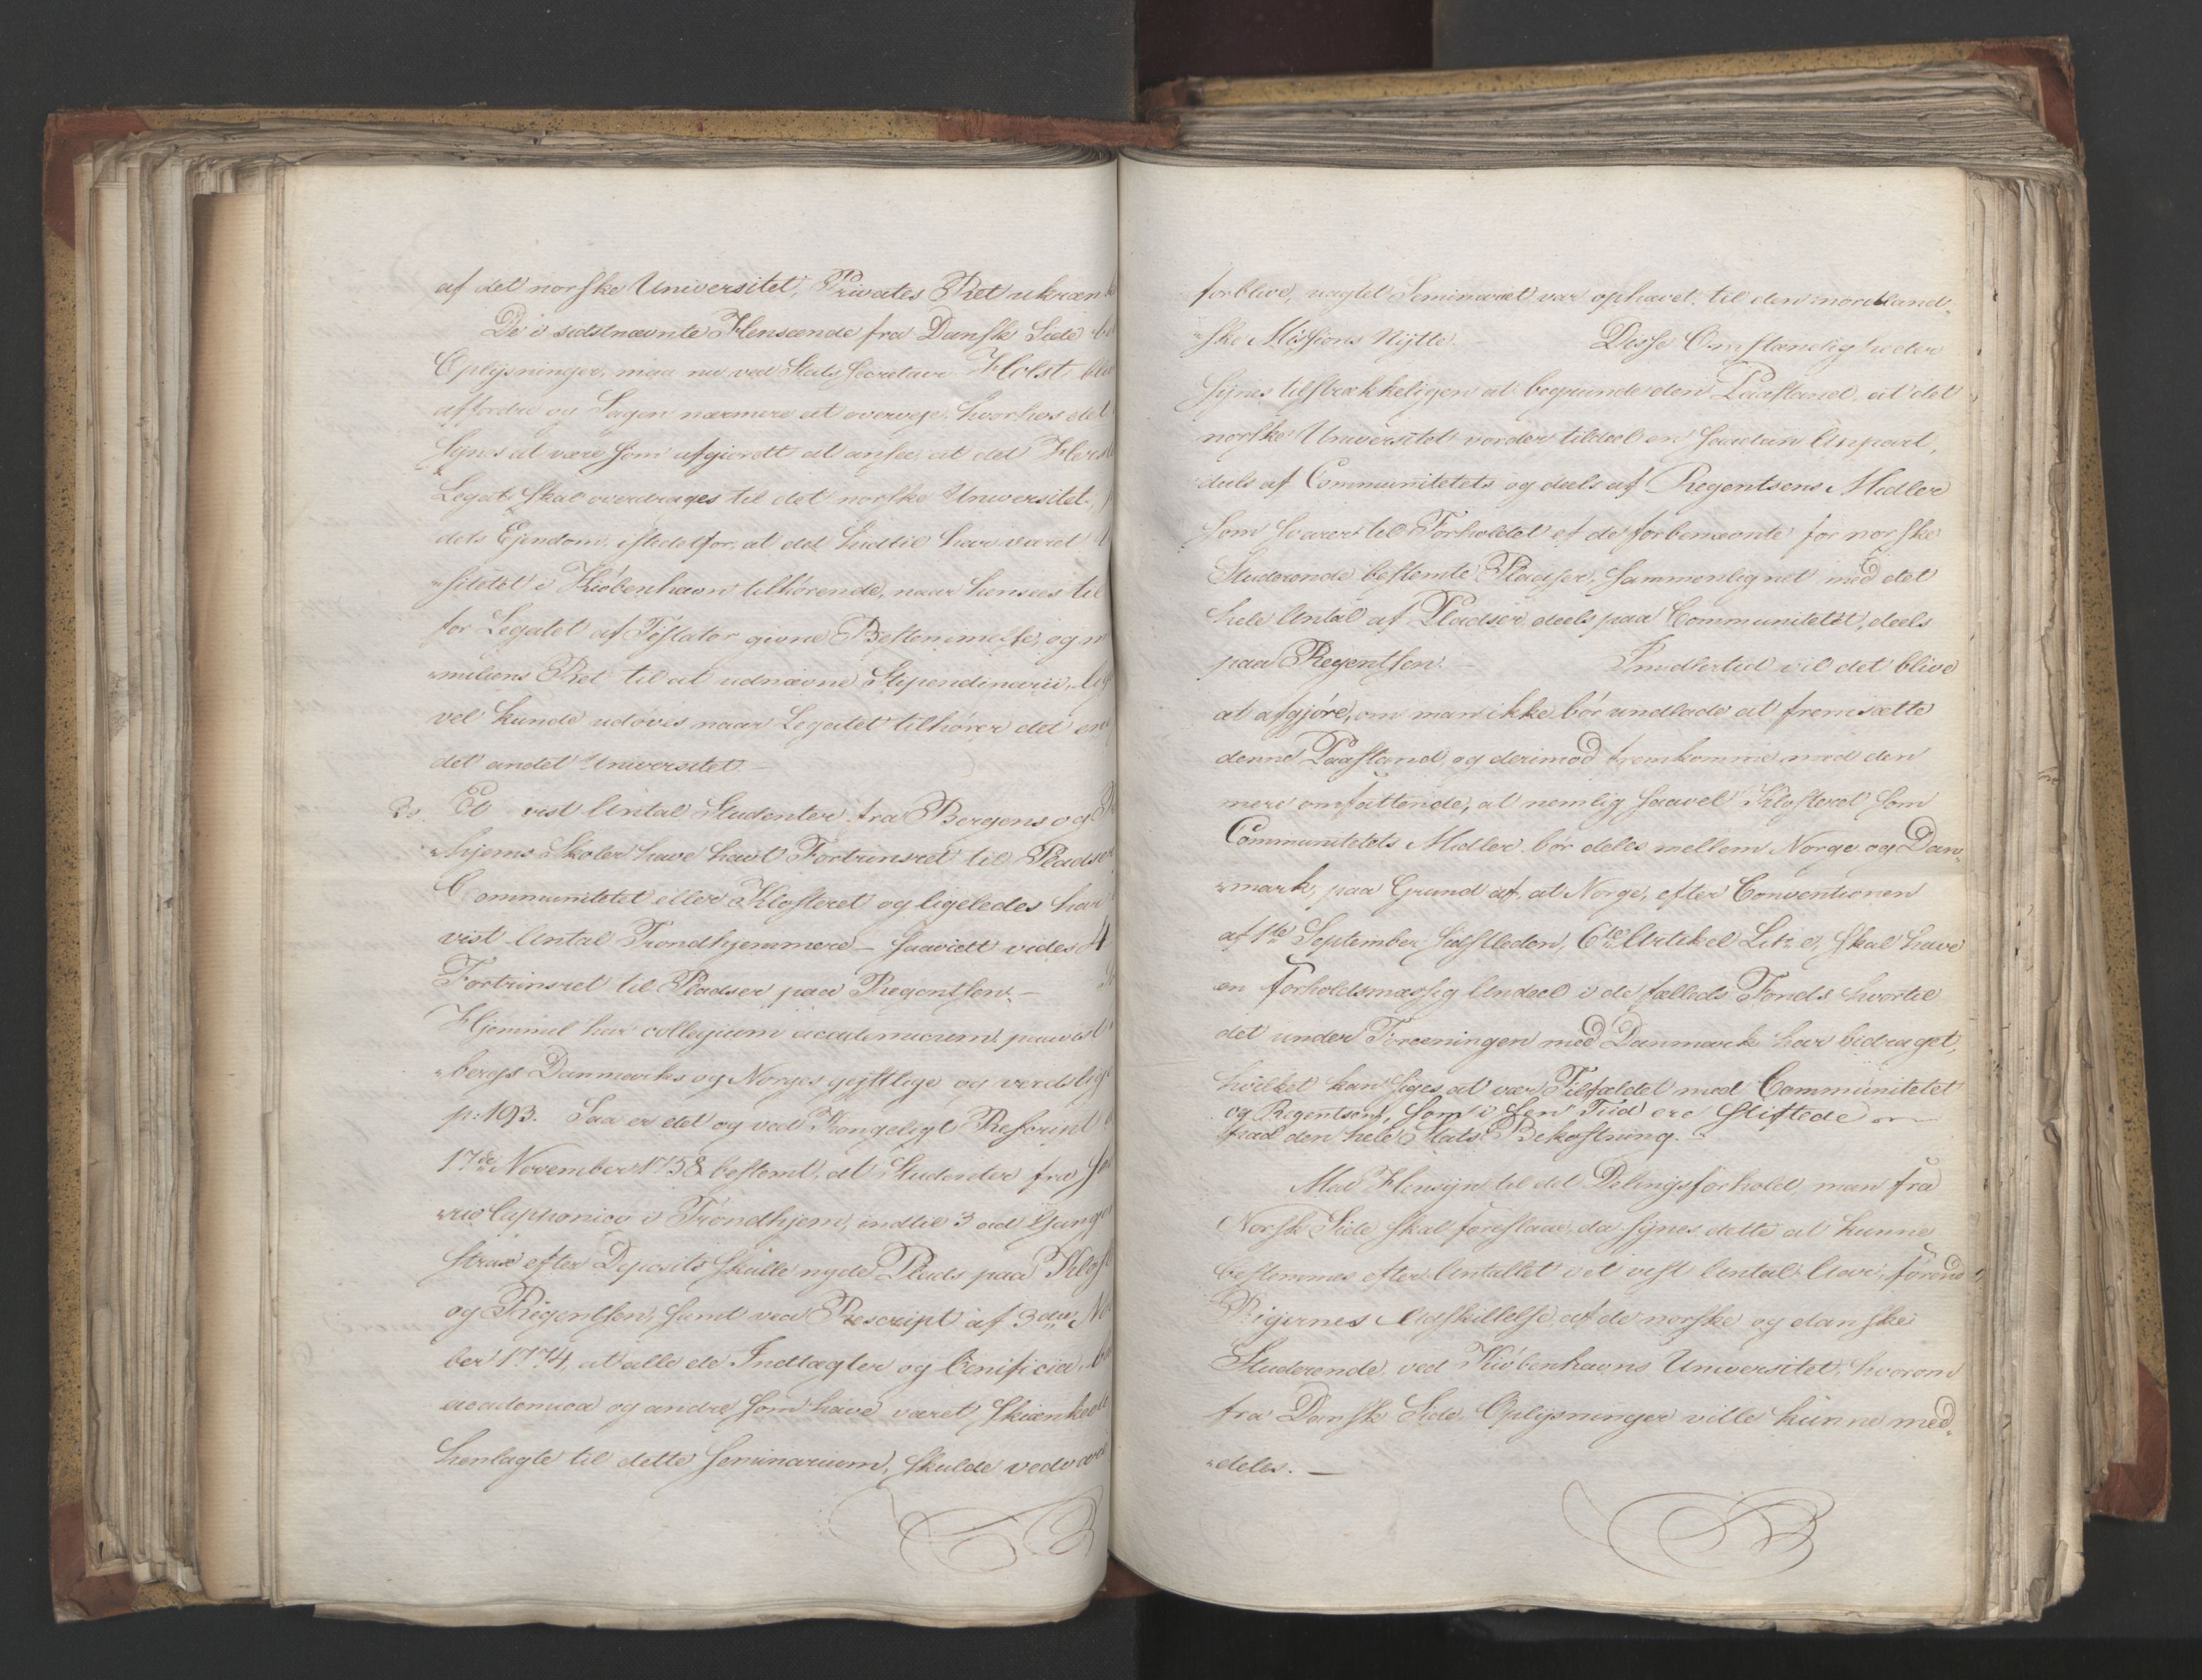 af det norske Universitet, Privates Ret ukrænk
De i sidstnævnte Hensænde fra Dansk Side
Oplysninger, maa nu ved Stats Secretair Holst bli
affordre og Sagen nærmere at overveje, hvorhos det
synes at være som afgiordtt at ansee, at det
Legat skal overdrages til det norske Universitet,
dets Ejendom, istedetfor, at det hidtil har været
"sitetet i Kiøbenhavn tilhørende, naar hensees til
for Legatet af Testator givne Bestemmelse, og
"miliens Ret til at udnævne Stipendiarii, lig
vel kunde udøves naar Legatet tilhører det en
det andet Universitet —
3o. Et vist Antal Studenter fra Bergens og
"hjems Skoler have havt Fortrinsret til Pladse
Communitetet eller Klosteret og ligeledes har
vist Antal Trondhjemmere – saavidt vides 4
Fortrinsret til Pladser paa Regentsen. —
Hjemmel har collegium academicum paa
"bergs Danmarks og Norges gejstlige og verdslig
p: 193. Saa er det og ved Kongeligt Rescript
17de November 1758 bestemt, at Studenter fra
"rio Laponico i Trondhjem, indtil 3 ad Gange
strax efter Deposits skulle nyde Plads paa Klost
og Regentsen, samt ved Rescript af 3die No
ber 1774, at alle de Indtægter og benificia,
academica og andre som have været skiænkede
henlagte til dette Seminarium, skulde vedvare
forblive, uagtet Seminariet var ophævet, til den nordland-
"ske Missions Nytte. — Disse Omstændigheder
synes tilstrækkeligen at begrunde den Paastand, at det
norske Universitet vorder tildeel en saadan Anpart,
deels af Communitetets og deels af Regentsens Midler
som svarer til Forholdet af de forbenævnte for norske
Studerende bestemte Pladser, sammenlignet med det
hele Antal af Pladser, deels paa Communitetet, deels
paa Regentsen. — Imidlertid vil det blive
at afgjøre, om man ikke bør undlade at fremsætte
denne Paastand, og derimod fremkomme med den
mere omfattende, at nemlig saavel Klosteret som
Communitetets Midler bør deles mellem Norge og Dan-
"mark, paa Grund af, at Norge, efter Conventionen
af 1ste September sidstleden, 6te Artikel Litr: e, skal have
en forholdsmæssig Andeel i de fælleds Fonds hvortil
det under Foreeningen med Danmark har bidraget,
hvilket kan siges at være Tilfældet med Communitetet
og Regentsens, som i sen Tiid ere stiftede
paa den hele Stats Bekostning. —
Med Hensyn til det Delingsforhold, man fra
Norsk Side skal foreslaae, da synes dette at kunne
bestemmes efter Antallet i et vist Antal Aar, førend
Rigernes Adskillelse, af de norske og danske
Studerende ved Kiøbenhavns Universitet, hvorom
fra Dansk Side Oplysninger ville kunne med-
"deles. —